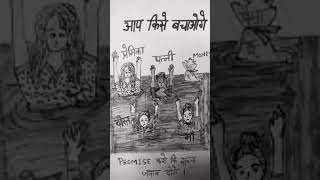 आप किसे बचाओगे
प्रेमिका
पत्नी
MONEY
दोस्त
माँ
PROMISE करो कि सच्चा
जवाब दोगे।